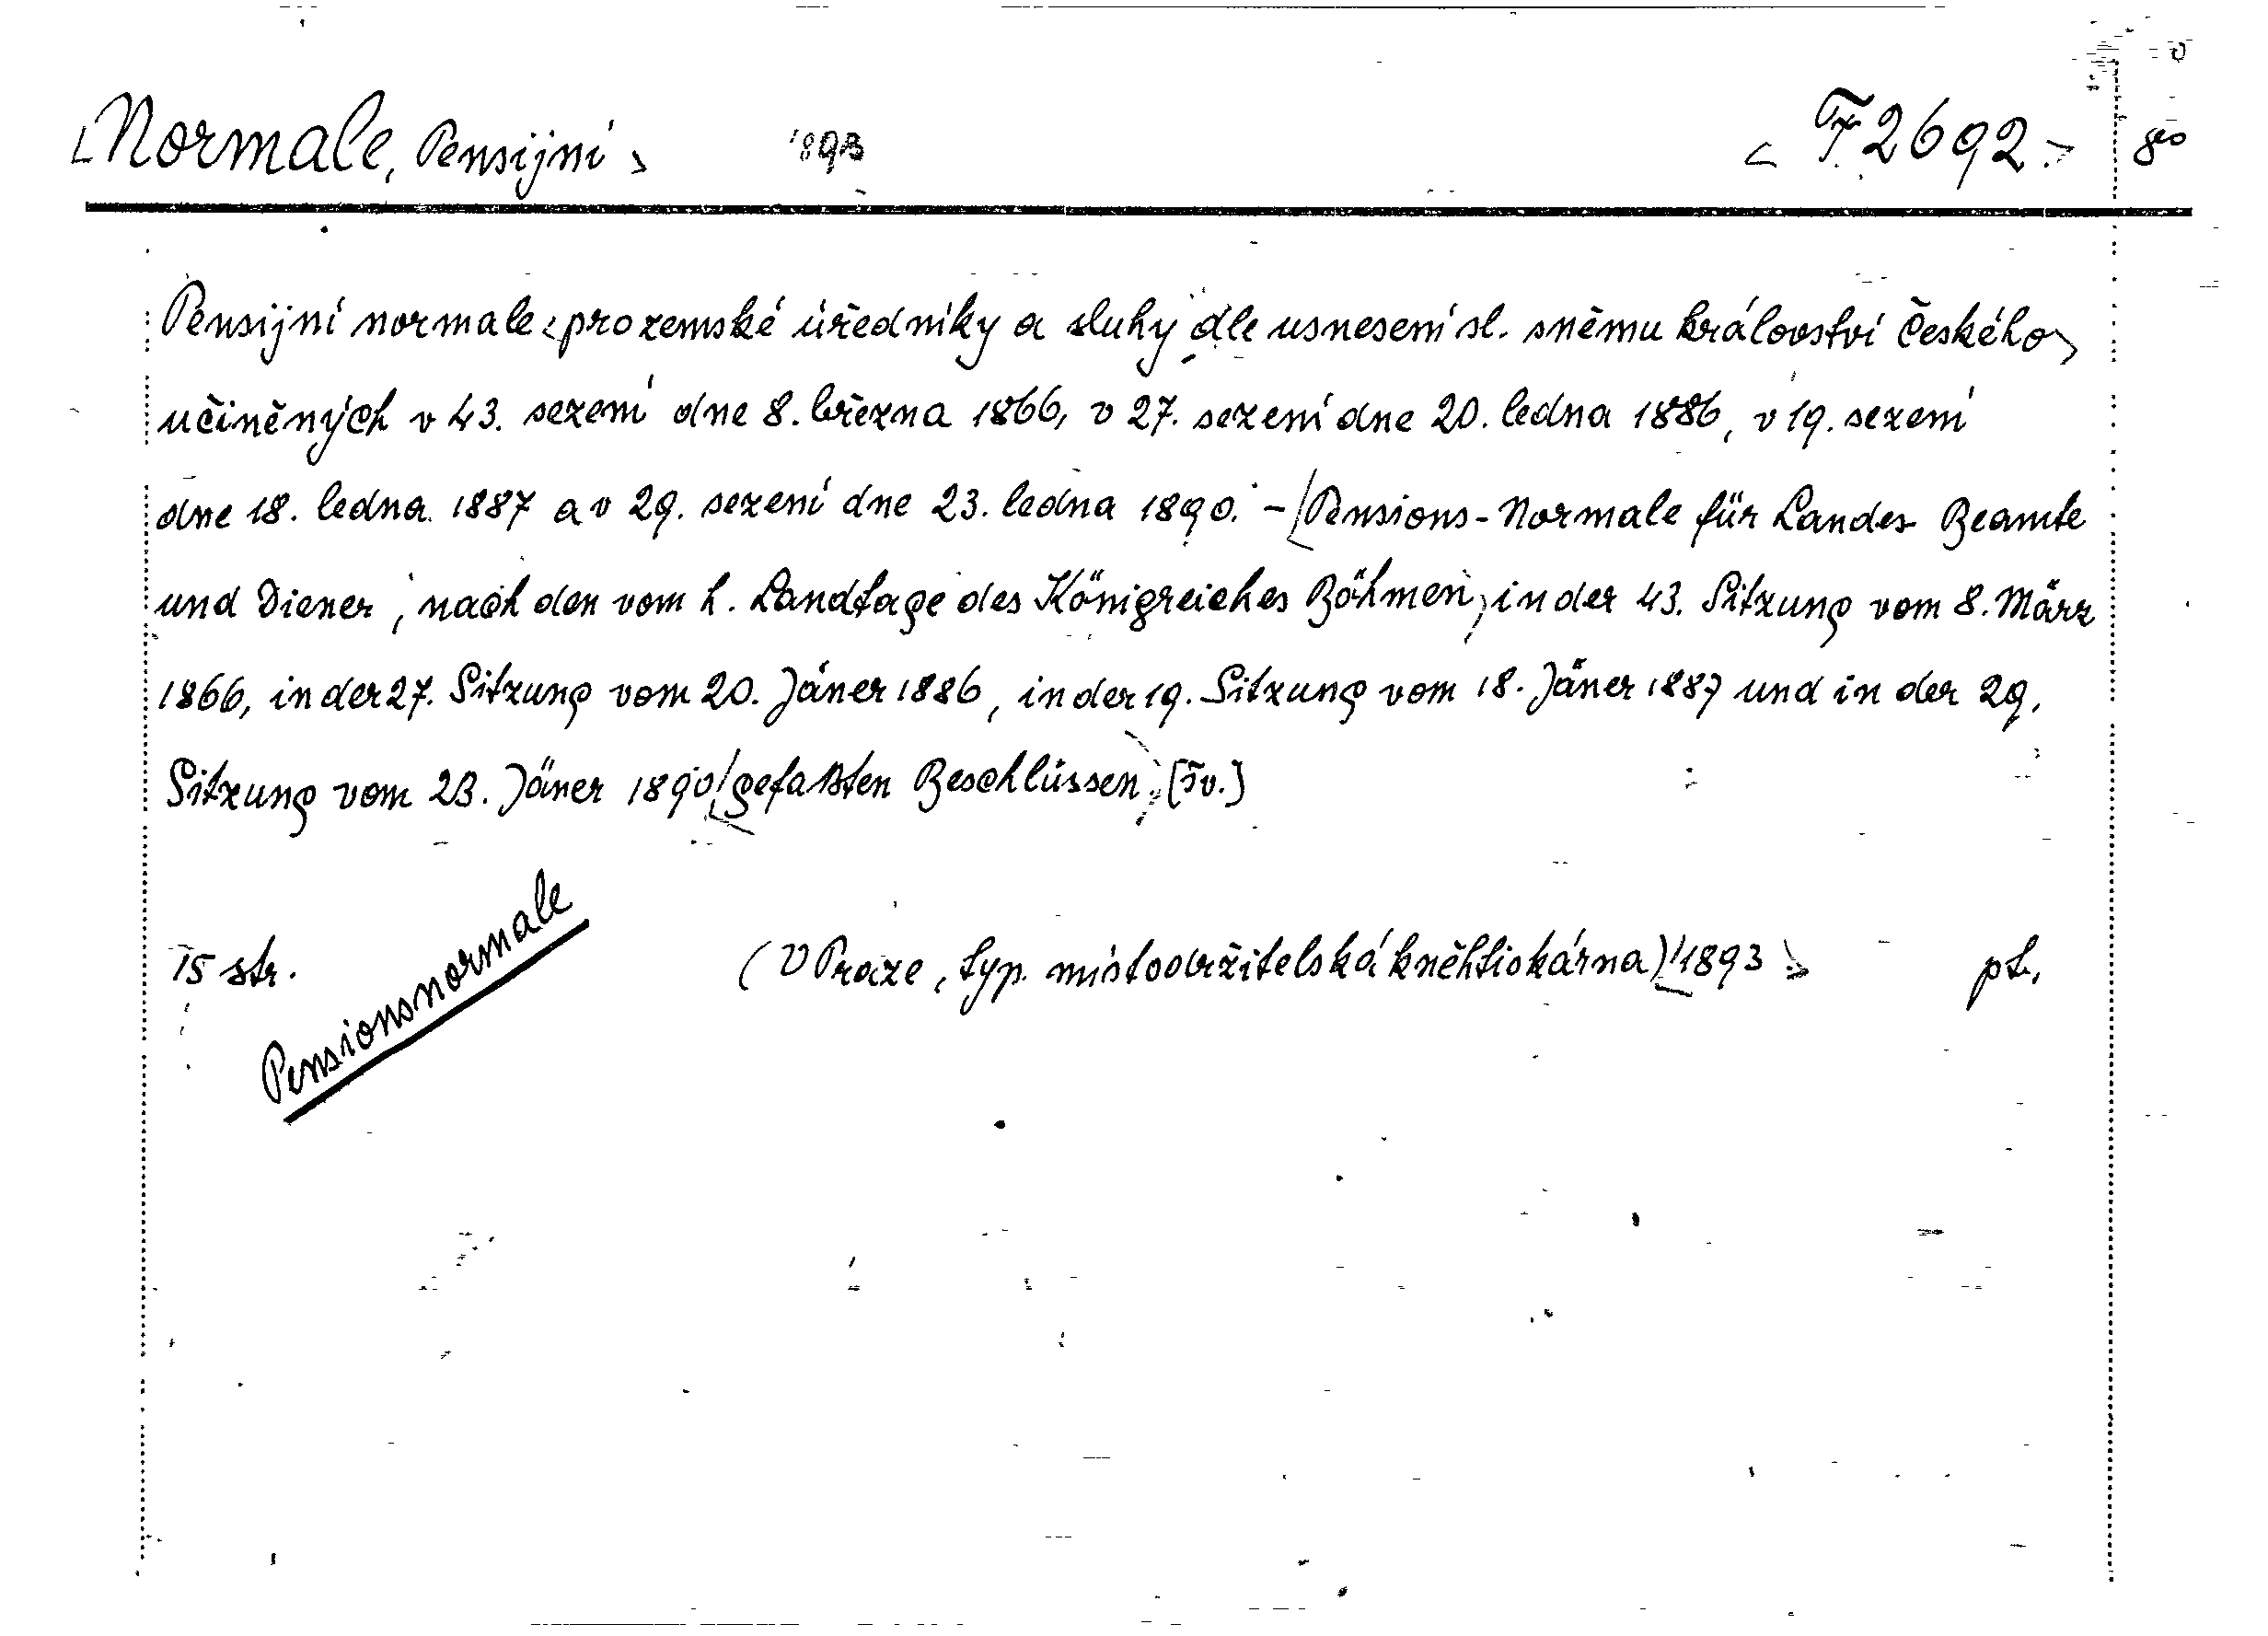 Normale, Pensijní 1893 F 2692. 8º
Pensijní normale pro zemské úředníky a sluhy dle usnesení sl. sněmu království českého
učiněných v 43. sezení dne 8. března 1866, v 27. sezení dne 20. ledna 1886, v 19. sezení
dne 18. ledna 1887 a v 29. sezení dne 23. ledna 1890. - Pensions-Normale für Landes Beamte
und Diener, nach den vom h. Landtage des Königreiches Böhmen, in der 43. Sitzung vom 8. März
1866, in der 27. Sitzung vom 20. Jäner 1886, in der 19. Sitzung vom 18. Jäner 1887 und in der 29.
Sitzung vom 23. Jäner 1890, gefaßten Beschlüssen.
15 str. (V Praze, typ. místodržitelská kněhtiskárna) 1893
Pensionsnormale